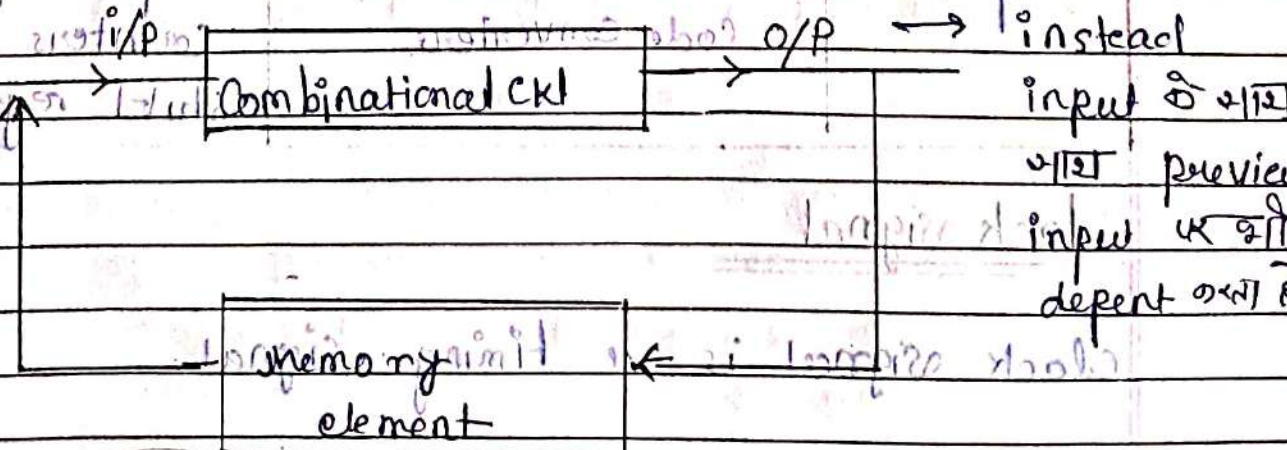 i/p
Combinational Ckt
O/P ⟷ instead
input के साथ
साथ previe
input पर भी
depent करता है
memory
element